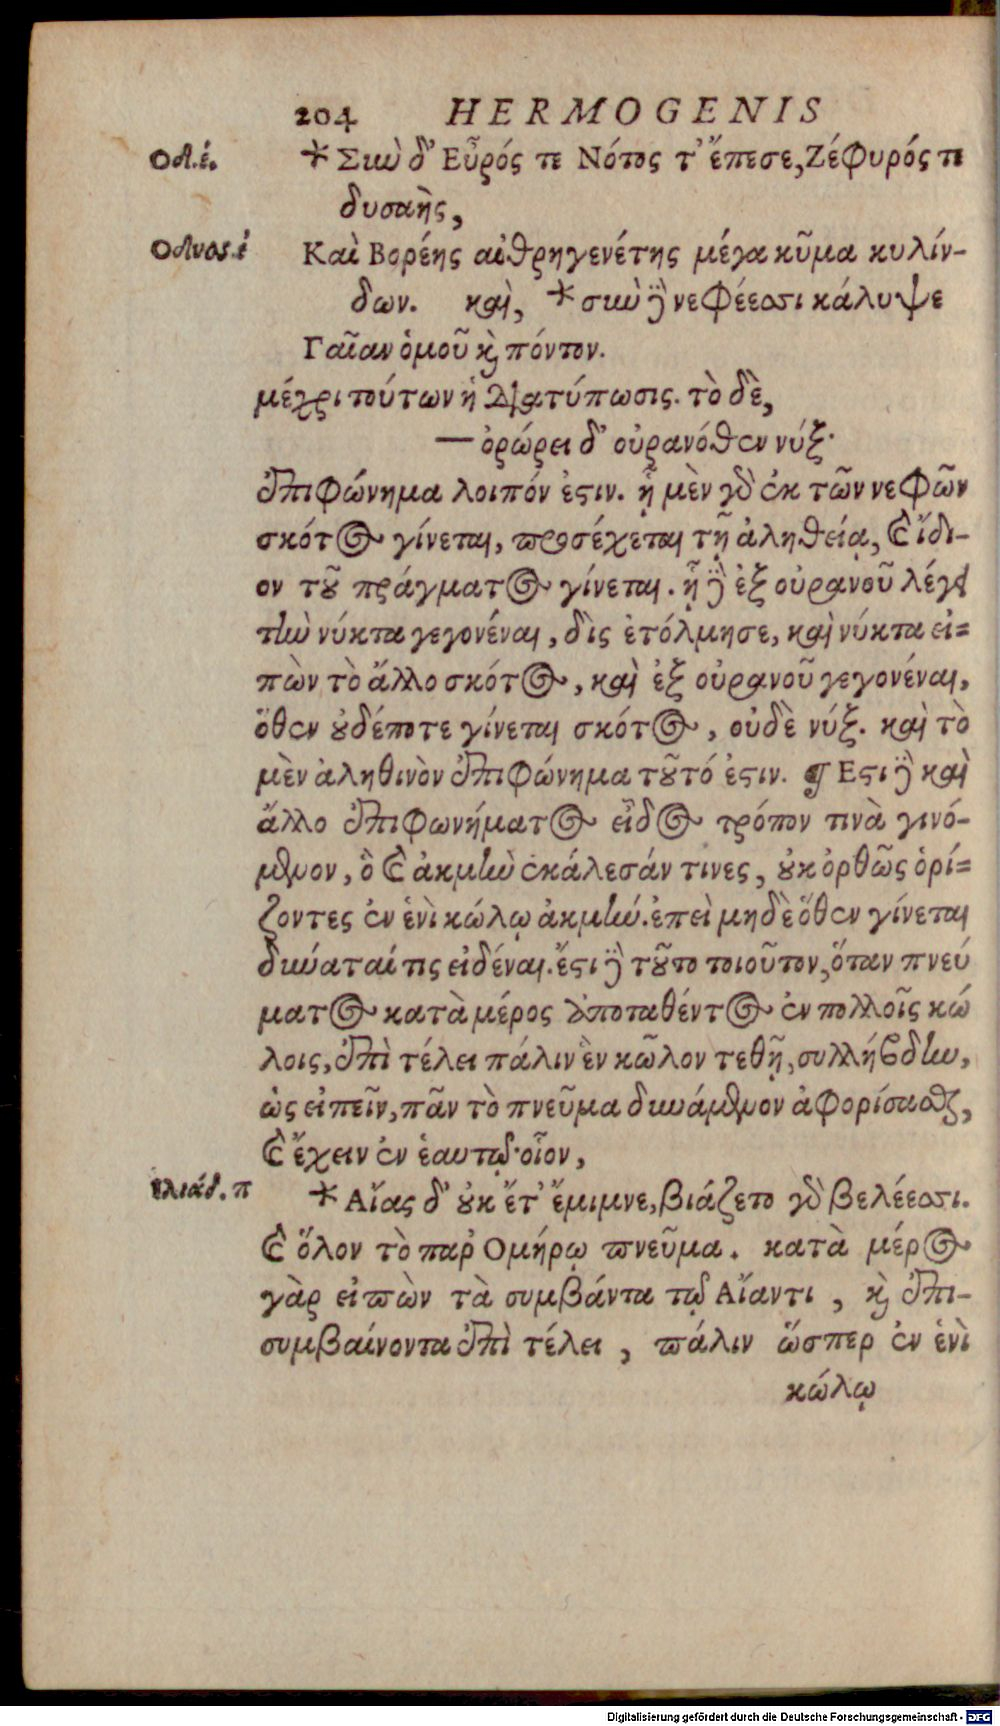 204 HERMOGENIS
Οδ. έ. * Σιωὺ δ' Εὖρός τε Νότος τ' ἔπεσε, Ζέφυρός τε
δυσαὴς,
Οδυσσ. έ Καὶ Βορέης αἰθρηγενέτης μέγα κῦμα κυλίν-
δων. καὶ, * σιωὺ δὲ νεφέεσσι κάλυψε
Γαῖαν ὁμοῦ καὶ πόντον.
μέχρι τούτων ἡ διατύπωσις. τὸ δὲ,
— ὀρώρει δ' οὐρανόθεν νύξ·
ἐπιφώνημα λοιπόν ἐστιν. ᾗ μὲν γὸ ἐκ τῶν νεφῶν
σκότος γίνεται, προσέχεται τῇ ἀληθείᾳ, καὶ ἴδι-
ον τοῦ πράγματος γίνεται. ᾗ δὲ ἐξ οὐρανοῦ λέγει
τὴν νύκτα γεγονέναι, δὶς ἐτόλμησε, καὶ νύκτα εἰ=
πὼν τὸ ἄλλο σκότος, καὶ ἐξ οὐρανοῦ γεγονέναι,
ὅθεν οὐδέποτε γίνεται σκότος, οὐδὲ νύξ. καὶ τὸ
μὲν ἀληθινὸν ἐπιφώνημα τοῦτό ἐστιν. ¶ Εστι δὲ καὶ
ἄλλο ἐπιφωνήματος εἶδος τρόπον τινὰ γινό-
μενον, ὃ καὶ ἀκμὴν ἐκάλεσάν τινες, οὐκ ὀρθῶς ὁρί=
ζοντες ἐν ἑνὶ κώλῳ ἀκμήν. ἐπεὶ μηδὲ ὅθεν γίνεται
δύναταί τις εἰδέναι. ἔστι δὲ τοῦτο τοιοῦτον, ὅταν πνεύ
ματος κατὰ μέρος ὑποταθέντος ἐν πολλοῖς κώ
λοις, ἐπὶ τέλει πάλιν ἓν κῶλον τεθῇ, συλλήβδην,
ὡς εἰπεῖν, πᾶν τὸ πνεῦμα δυνάμενον ἀφορίσασθαι,
καὶ ἔχειν ἐν ἑαυτῷ· οἷον,
Ιλιάδ. π * Αἴας δ' οὐκ ἔτ' ἔμιμνε, βιάζετο γὸ βελέεσσι.
καὶ ὅλον τὸ παρ' Ομήρῳ πνεῦμα. κατὰ μέρος
γὰρ εἰπὼν τὰ συμβάντα τῷ Αἴαντι, καὶ ἐπι-
συμβαίνοντα ἐπὶ τέλει, πάλιν ὥσπερ ἐν ἑνὶ
κώλῳ
Digitalisierung gefördert durch die Deutsche Forschungsgemeinschaft - DFG